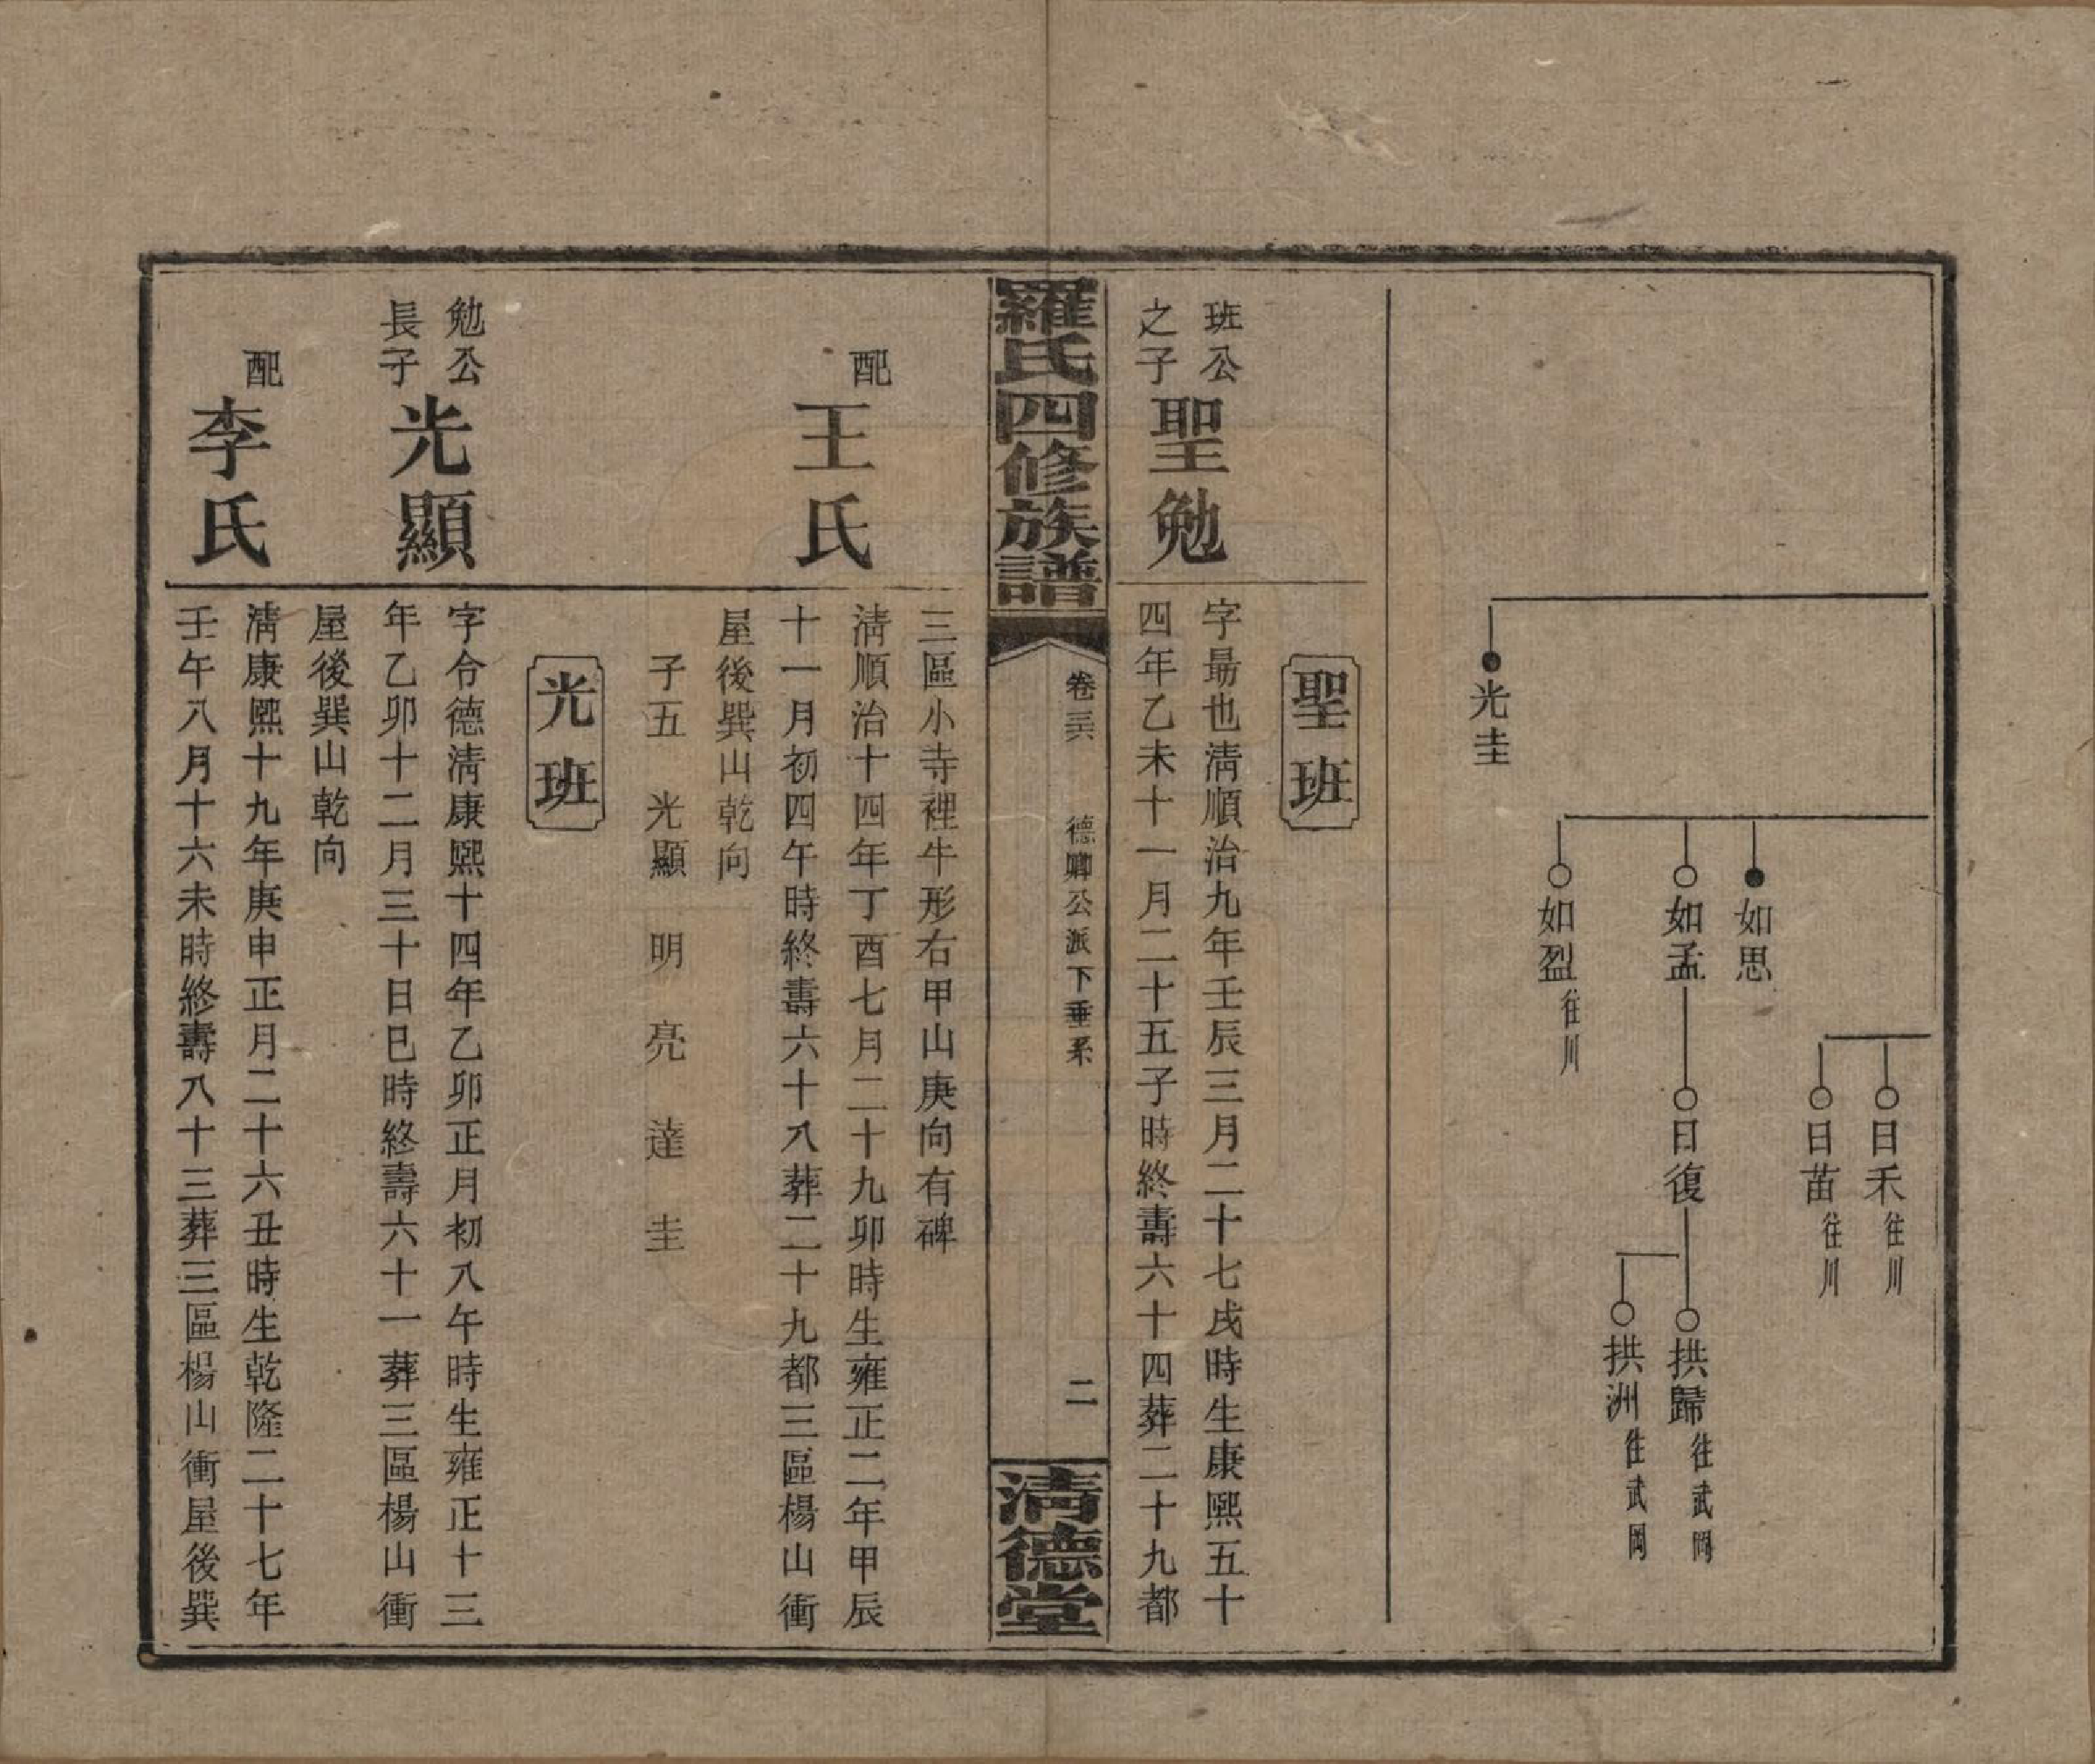 日禾往川
日苗往川
如思
如孟
日復
拱歸往武岡
拱洲往武岡
如盈往川
光圭
聖班
班公
之子
聖勉
字最也清順治九年壬辰三月二十七戌時生康熙五十
四年乙未十一月二十五子時終壽六十四葬二十九都
羅氏四修族譜
德卿公派下垂系
二
清德堂
三區小寺裡牛形右甲山庚向有碑
配
王氏
清順治十四年丁酉七月二十九卯時生雍正二年甲辰
十一月初四午時終壽六十八葬二十九都三區楊山衝
屋後巽山乾向
子五 光顯 明 亮 達 圭
光班
勉公
長子
光顯
字令德清康熙十四年乙卯正月初八午時生雍正十三
年乙卯十二月三十日巳時終壽六十一葬三區楊山衝
屋後巽山乾向
配
李氏
清康熙十九年庚申正月二十六丑時生乾隆二十七年
壬午八月十六未時終壽八十三葬三區楊山衝屋後巽